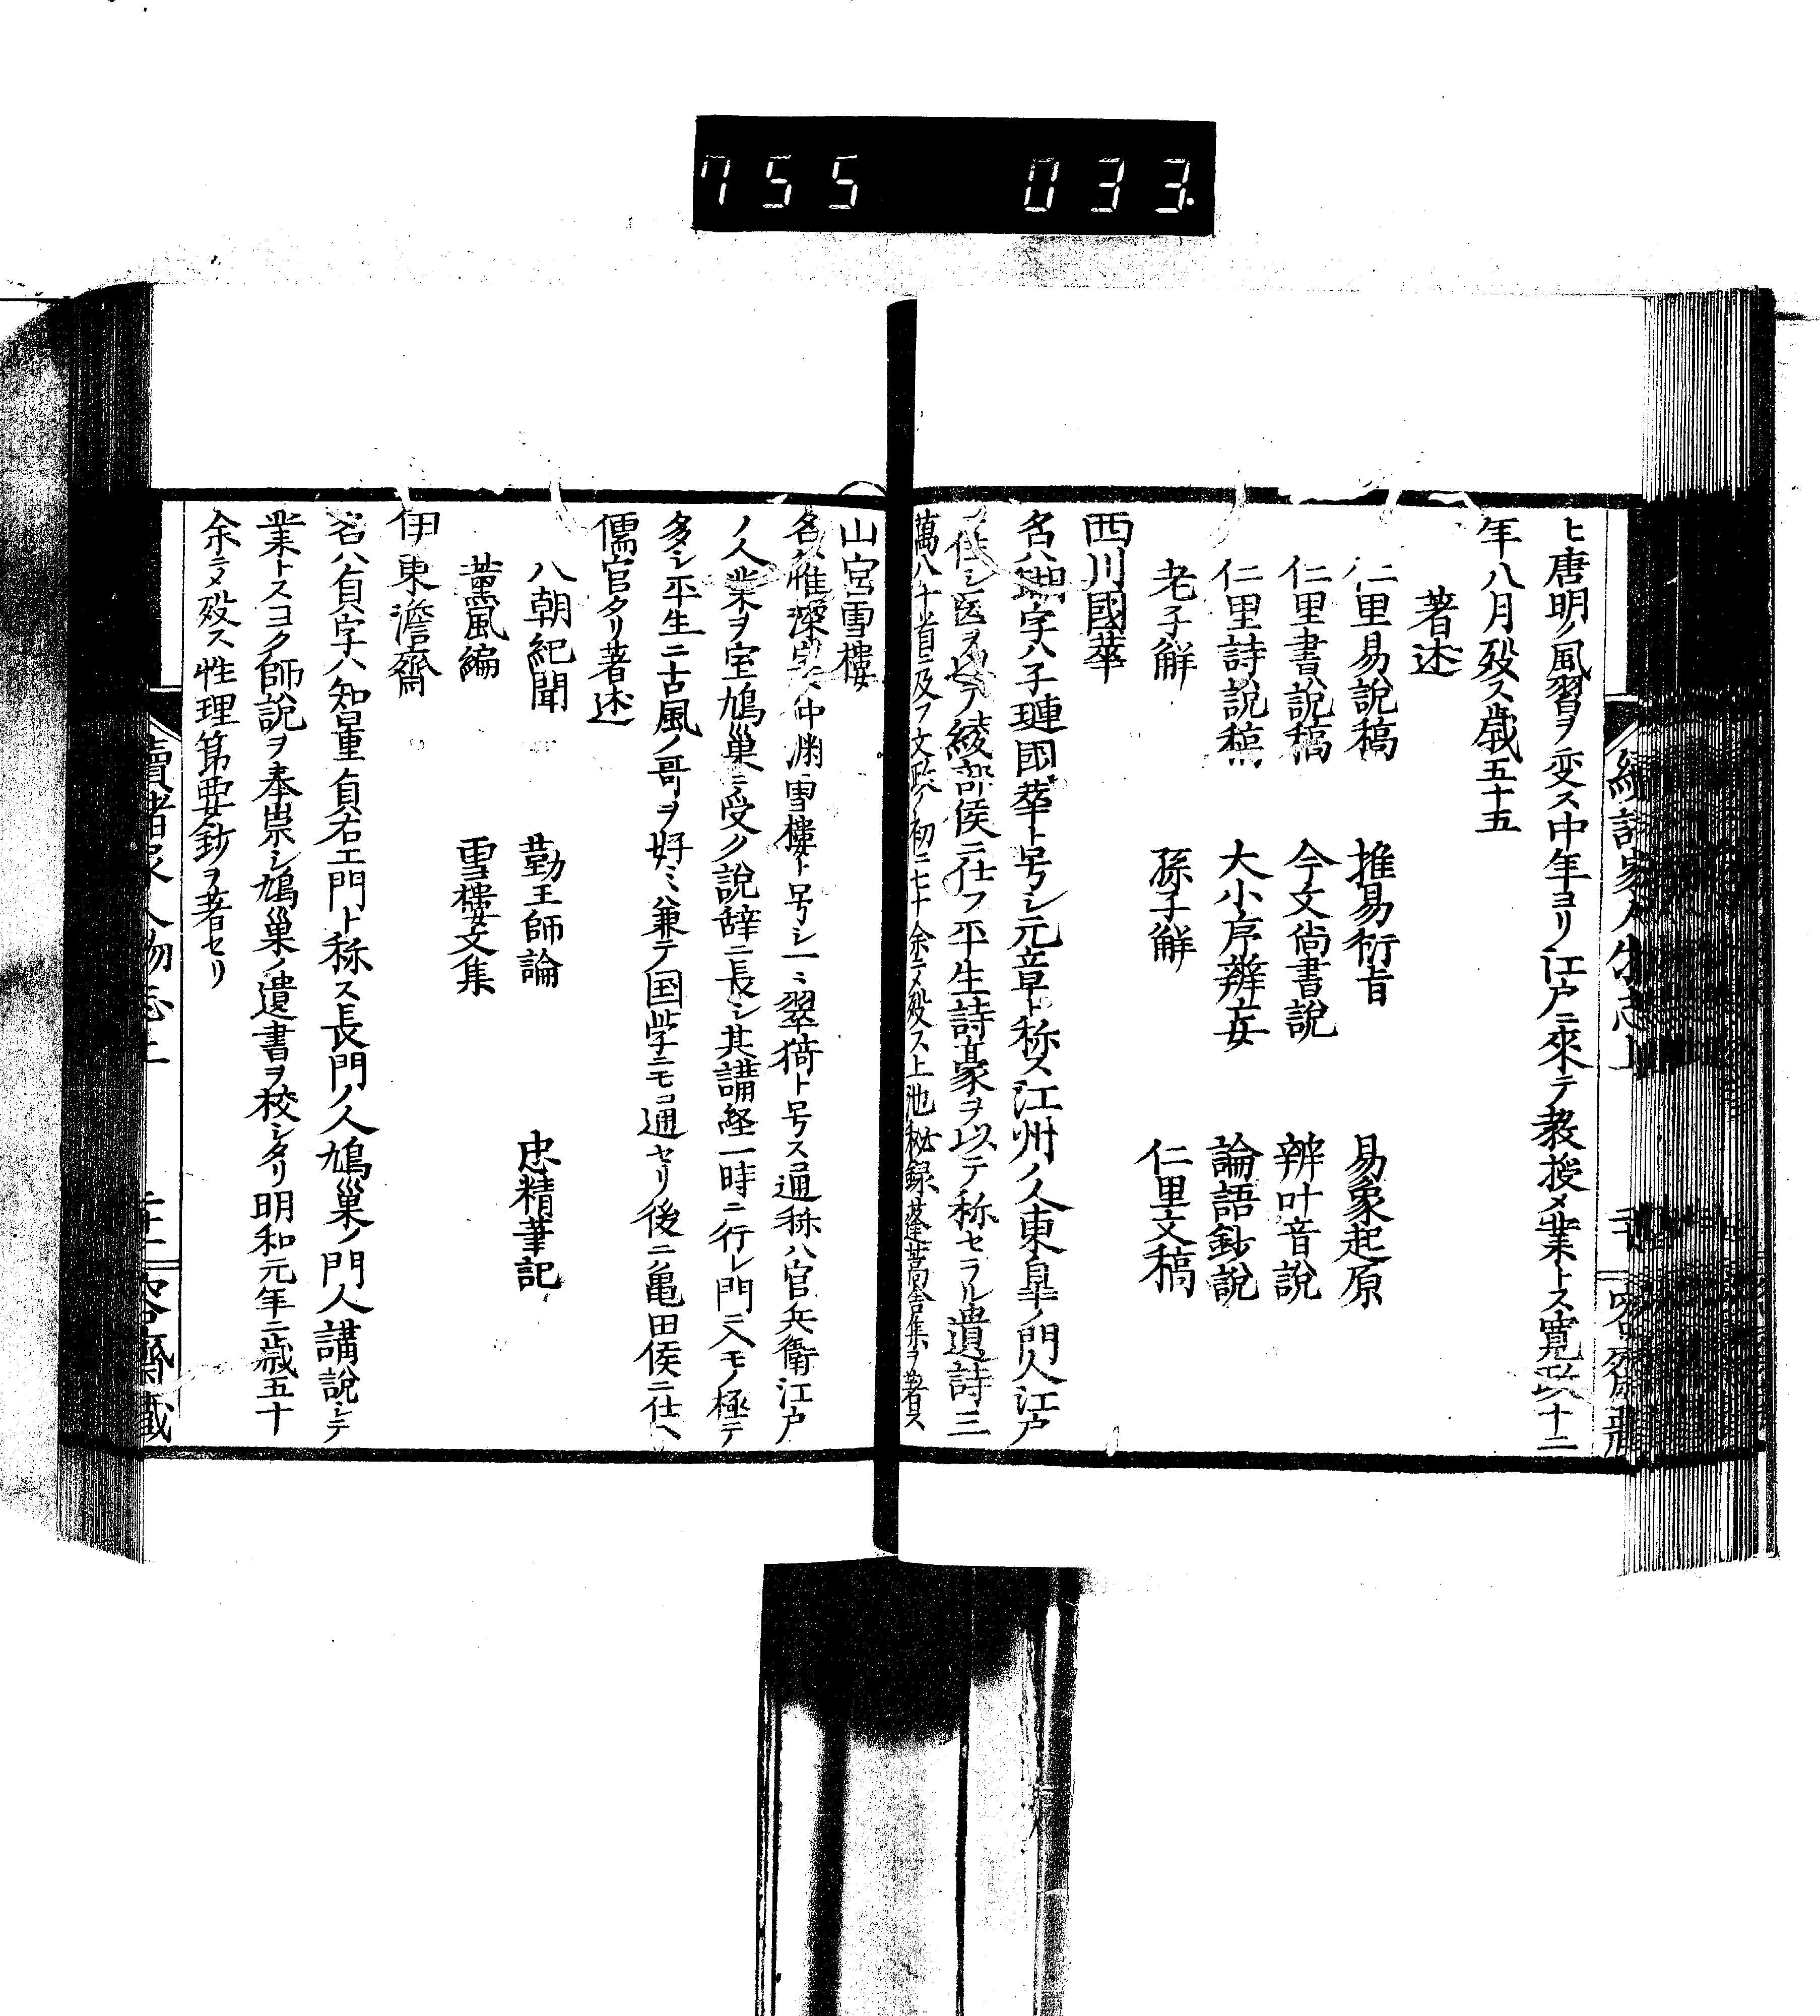 755 033
ヒ唐明ノ風習ヲ変ス中年ヨリ江戸ニ來テ教授メ業トス寛政十二
年八月殁ス歳五十五
著述
仁里易説稿 推易衍旨 易象起原
仁里書説稿 今文尚書説 辨叶音説
仁里詩説稿 大小序辨妄 論語鈔説
老子解 孫子解 仁里文稿
西川國華
名ハ瑚字ハ子璉國華ト号シ元章ト称ス江州ノ人東皐ノ門人江戸
ニ住シ医ヲ以テ綾部侯ニ仕フ平生詩豪ヲ以テ称セラル遺詩三
萬八千首ニ及フ文政ノ初ニ七十余ニメ殁ス上池秘録蓬蒿舎集ヲ著ス
山宮雪樓
名ハ維深字ハ仲淵雪樓ト号シ一ニ翠猗ト号ス通称ハ官兵衛江戸
ノ人業ヲ室鳩巣ニ受ク説辞ニ長シ其講経一時ニ行レ門ニ入モノ極テ
多シ平生ニ古風ノ哥ヲ好ミ兼テ国学ニモ通セリ後ニ亀田侯ニ仕ヘ
儒官タリ著述
八朝紀聞 勤王師論 忠精筆記
薫風編 雪樓文集
伊東澹齋
名ハ貞字ハ知量貞右エ門ト称ス長門ノ人鳩巣ノ門人講説シテ
業トスヨク師説ヲ奉祟シ鳩巣ノ遺書ヲ校シタリ明和元年ニ歳五十
余ニメ殁ス性理第要鈔ヲ著セリ